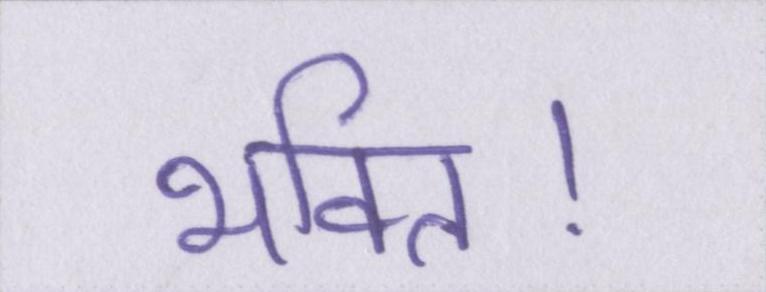 भक्ति!